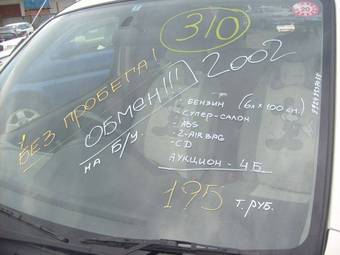 310
2002
БЕЗ ПРОБЕГА!
ОБМЕН!!!
НА Б/У.
- БЕНЗИН (6л x 100 км.)
- СУПЕР-САЛОН
- ABS
- 2-AIRBAG
- CD
АУКЦИОН - 4Б.
195 Т.РУБ.